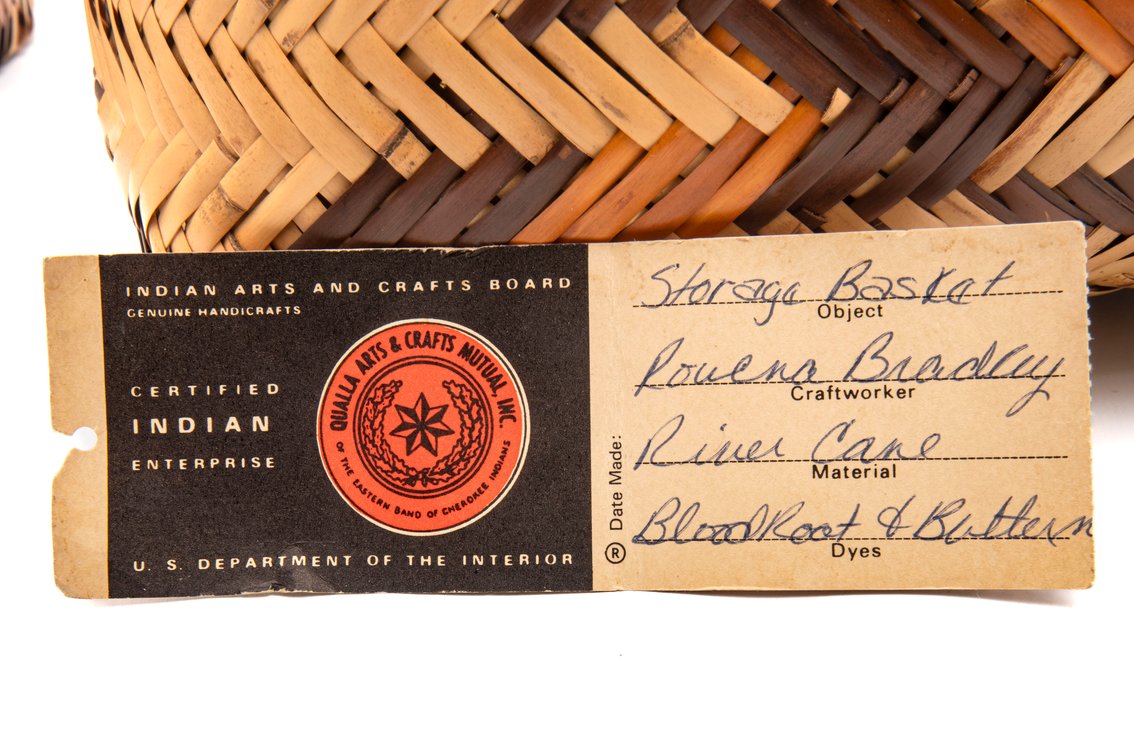 INDIAN ARTS AND CRAFTS BOARD
GENUINE HANDICRAFTS
CERTIFIED
INDIAN
ENTERPRISE
QUALLA ARTS & CRAFTS MUTUAL, INC.
OF THE EASTERN BAND OF CHEROKEE INDIANS
U. S. DEPARTMENT OF THE INTERIOR
® Date Made:
Storage Basket
Object
Rowena Bradley
Craftworker
River Cane
Material
BloodRoot & Buttern
Dyes